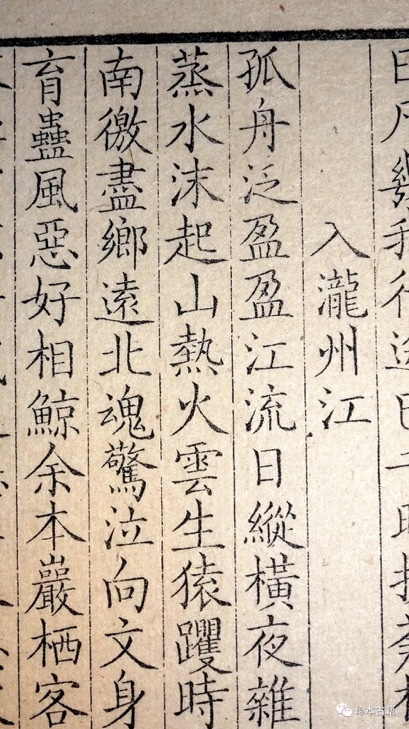 入瀧州江
孤舟泛盈盈江流日縱橫夜雜
蒸水沫起山熱火雲生猿躩時
南徼盡鄉遠北魂驚泣向文身
育蠱風惡好相鯨余本巖栖客
珍本古籍